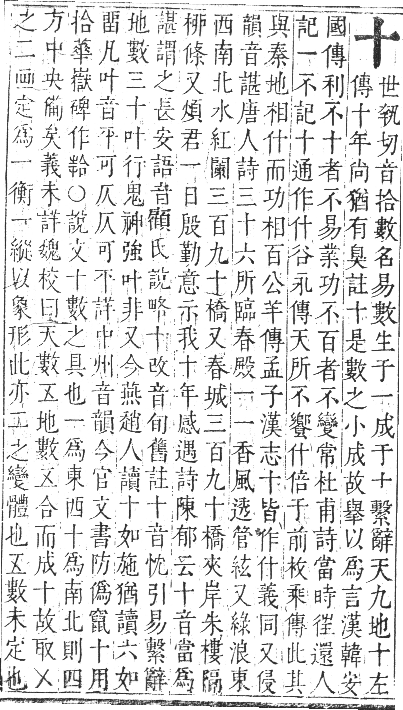 十
世執切音拾數名易數生于一成于十繫辭天九地十左
傳十年尚猶有臭註十是數之小成故舉以爲言漢韓安
國傳利不十者不易業功不百者不變常杜甫詩當時徃還人
記一不記十通作什谷永傳天所不饗什倍于前枚乘傳此其
與秦地相什而功相百公羊傳孟子漢志十皆作什義同又侵
韻音諶唐人詩三十六所臨春殿一一香風透管絃又綠浪東
西南北水紅闌三百九十橋又春城三百九十橋夾岸朱樓隔
柳條又煩君一日殷勤意示我十年感遇詩陳郁云十音當爲
諶謂之長安語音顧氏說略十改音旬舊註十音忱引易繫辭
地數三十叶行鬼神強叶非又今燕趙人讀十如施猶讀六如
畱凡叶音平可仄仄可平詳中州音韻今官文書防僞竄十用
拾華嶽碑作䶎○說文十數之具也一爲東西丨爲南北則四
方中央備矣義未詳魏校曰天數㐅地數㐅合而成十故取㐅
之二畫定爲一衡一縱以象形此亦㐅之變體也㐅數未定也